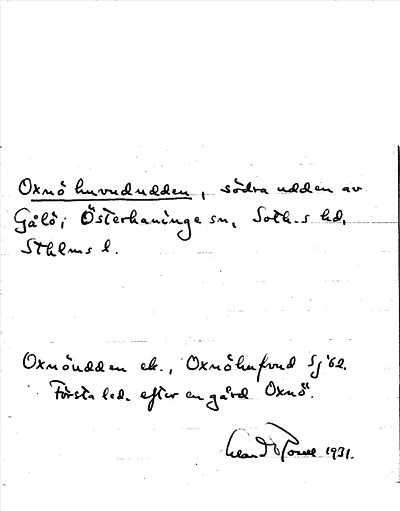 Oxnö huvududden, södra udden av
Gålö i Österhaninge sn, Soth.s hd,
Sthlms l.
Oxnöudden ek., Oxnöhufvud Sj '62.
Första led. efter en gård Oxnö.
1931.